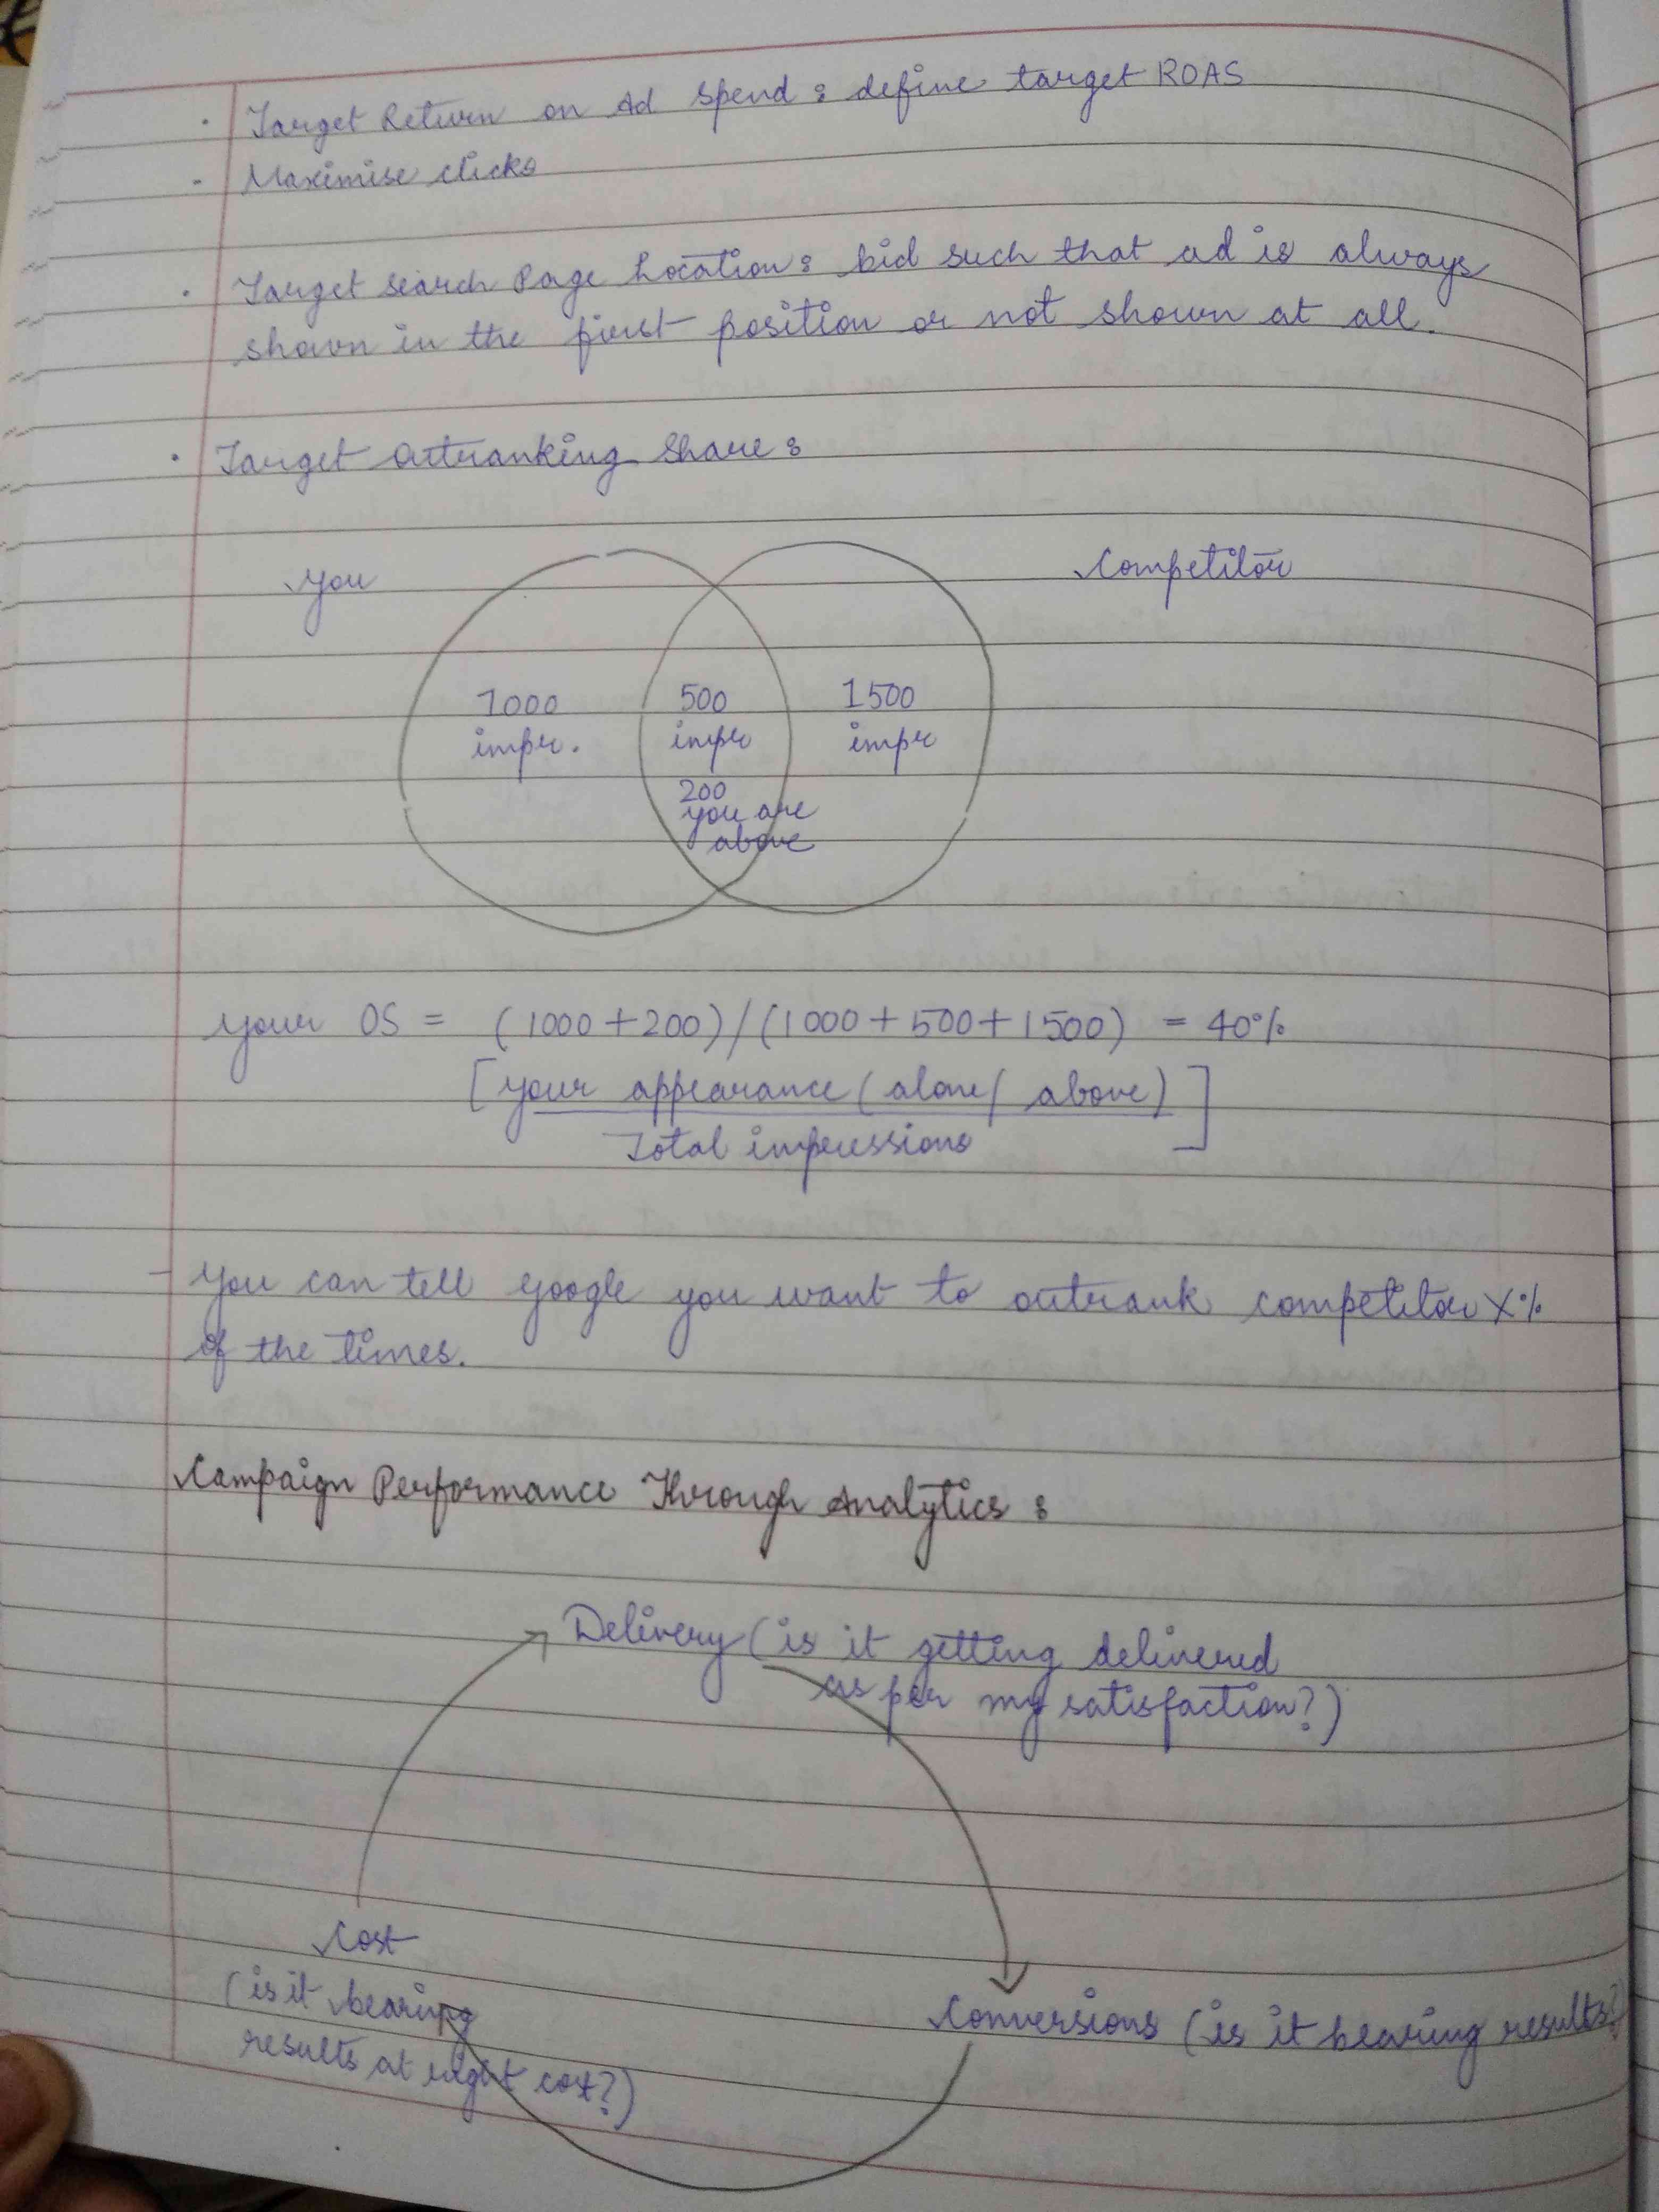 · Target Return on Ad Spend : define target ROAS
- Maximise clicks
· Target Search Page Location : bid such that ad is always
shown in the first position or not shown at all.
· Target Outranking Share :
You
Competitor
1000
impr.
500
impr
1500
impr
200
you are
above
your OS = (1000+200)/(1000+500+1500) = 40%
[your appearance (alone/above)]
Total impressions
- You can tell google you want to outrank competitor X%
of the times.
Campaign Performance Through Analytics :
Delivery (is it getting delivered
as per my satisfaction?)
Cost
(is it bearing
results at right cost?)
Conversions (is it bearing results?